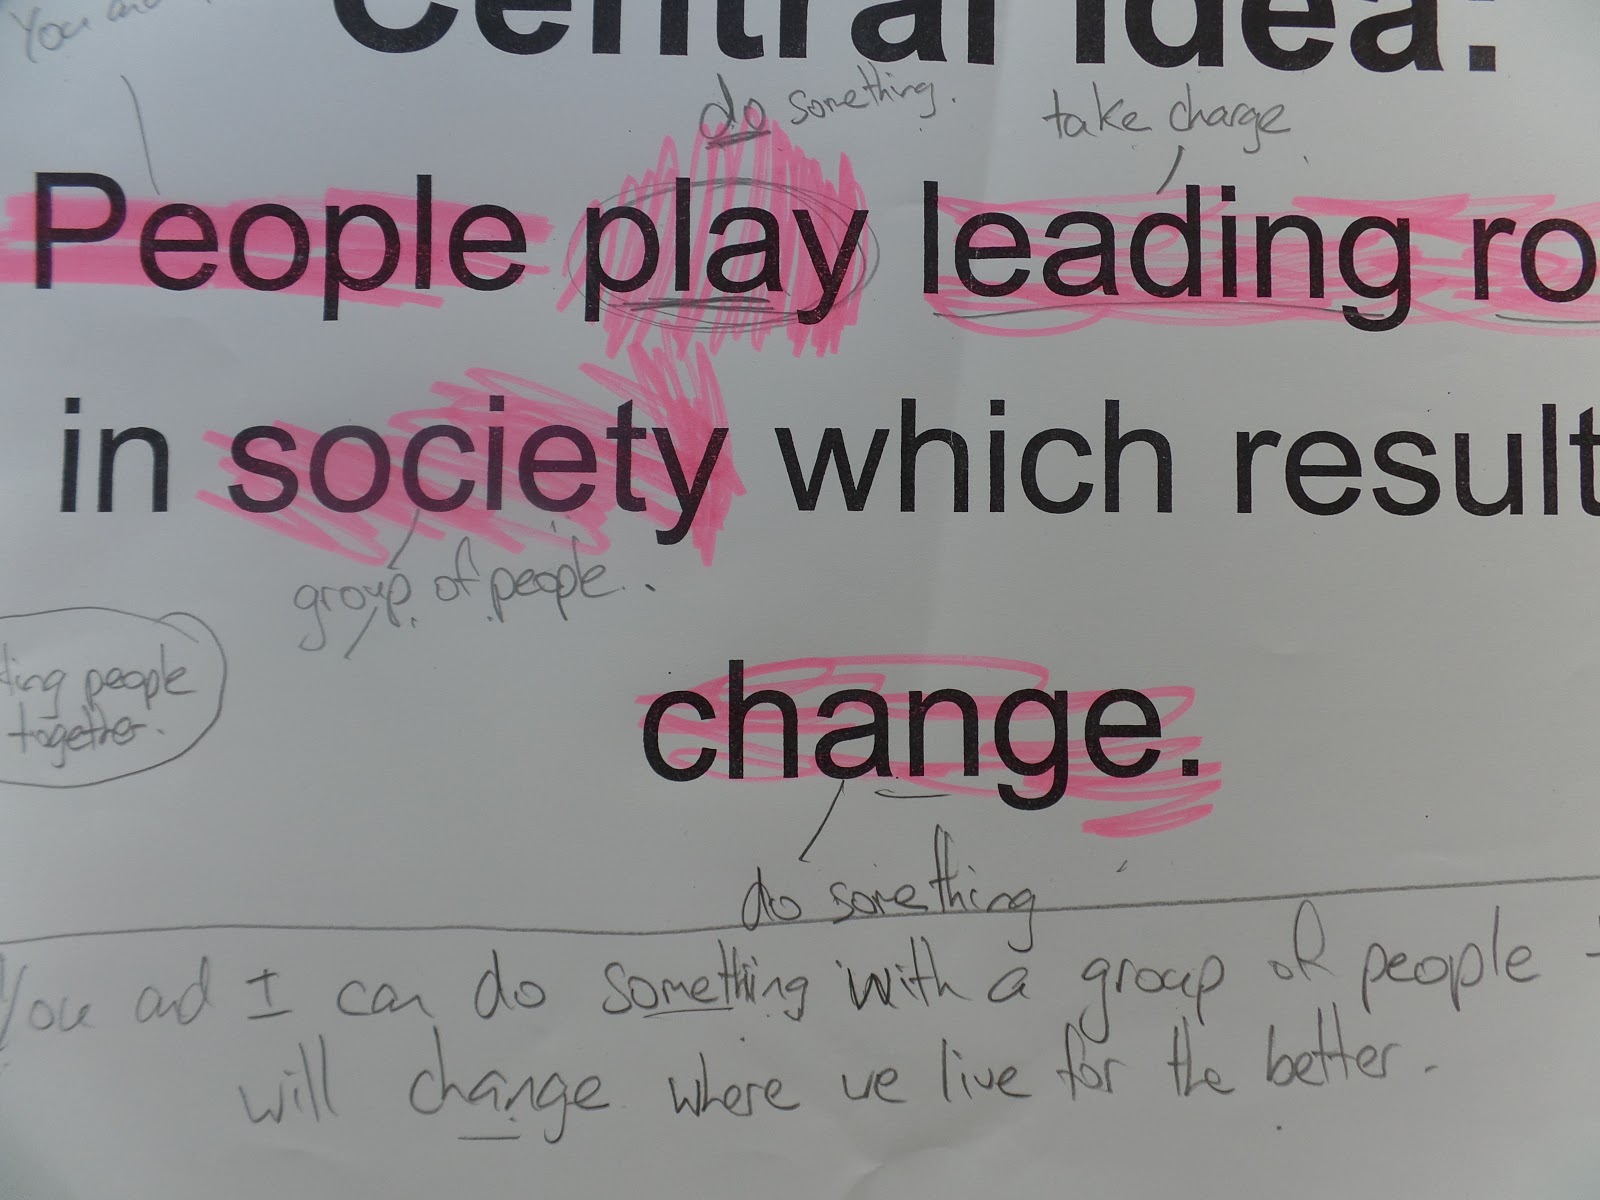 You and
Central Idea:
do something.
take charge
People play leading ro
in society which result
group of people.
ting people
together.
change.
do something
You and I can do something with a group of people
will change where we live for the better.